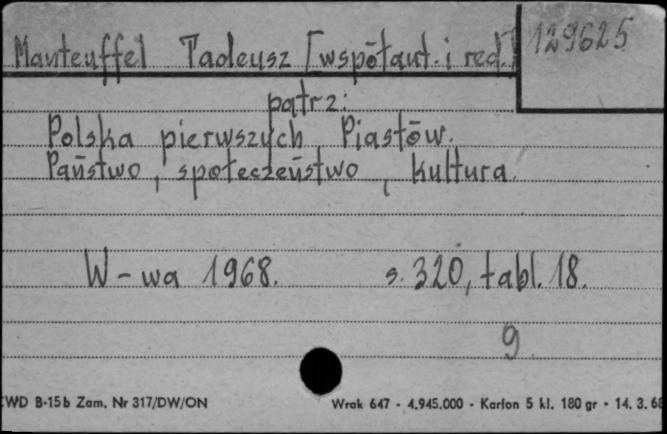 Manteuffel Tadeusz [współaut. i red.]
129625
patrz:
Polska pierwszych Piastów.
Państwo, społeczeństwo, kultura.
W-wa 1968. s. 320, tabl. 18.
9
CWD B-15b Zam. Nr 317/DW/ON Wrak 647 - 4.945.000 - Karton 5 kl. 180 gr - 14. 3. 68